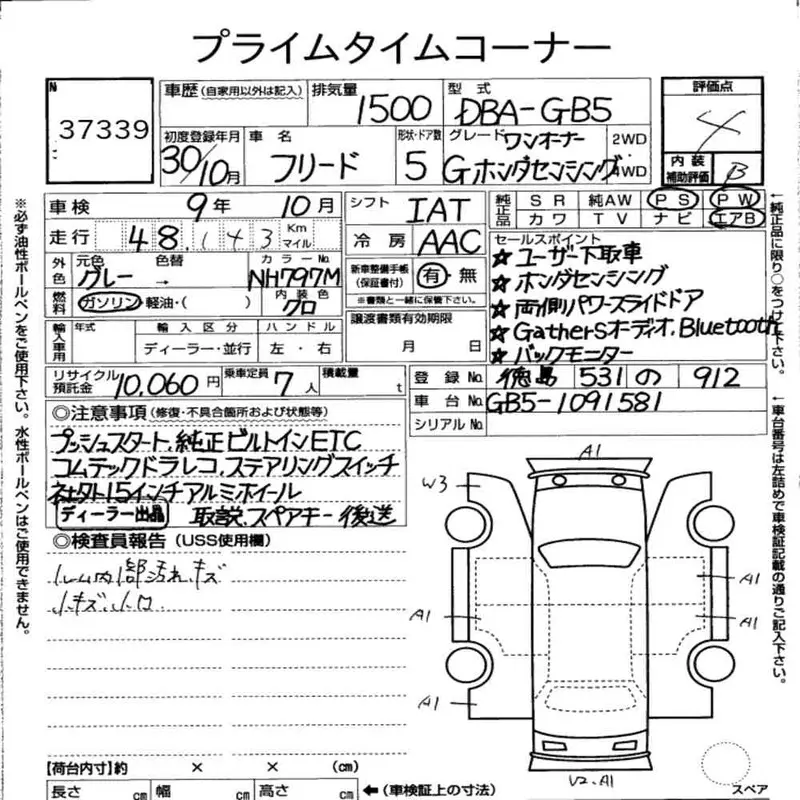 プライムタイムコーナー
№
37339
車歴 (自家用以外は記入)
排気量
1500
型 式
DBA-GB5
評価点
4
初度登録年月
30/10月
車 名
フリード
形状・ドア数
5
グレード ワンオーナー
G ホンダセンシング
2WD
4WD
内 装
補助評価
B
車検 9年 10月
シフト IAT
純正品
S R 純AW P S P W
カ ワ T V ナ ビ エアB
走行 48,143 Km マイル
冷 房 AAC
セールスポイント
☆ ユーザー下取車
☆ ホンダセンシング
☆ 両側パワースライドドア
☆ Gathersオーディオ.Bluetooth
☆ バックモニター
外色 元色 色替 カラーNo.
グレー → NH797M
新車整備手帳
(保証書付)
有・無
※書類と一緒に保管下さい。
燃料 ガソリン・軽油・( )
内 装 色
クロ
輸入車用 年式 輸 入 区 分 ハ ン ド ル
ディーラー・並行 左・右
譲渡書類有効期限
月 日
リサイクル
預託金 10,060円
乗車定員 7人
積載量 t
登 録 No. 徳島 531 の 912
車 台 No. GB5-1091581
シリアルNo.
◎注意事項 (修復・不具合箇所および状態等)
プッシュスタート.純正ビルトインETC
コムテックドラレコ.ステアリングスイッチ
社外15インチアルミホイール
ディーラー出品 取説.スペアキー 後送
◎検査員報告 (USS使用欄)
ルーム内部汚れ、キズ
小キズ、小凹
A1
W3
A1
A1
A1
A1
V2.A1
スペア
【荷台内寸】約 × × (cm)
長さ cm 幅 cm 高さ cm ←(車検証上の寸法)
※必ず油性ボールペンをご使用下さい。水性ボールペンはご使用できません。
←純正品に限り○をつけて下さい。
←車台番号は左詰めで車検証記載の通りご記入下さい。